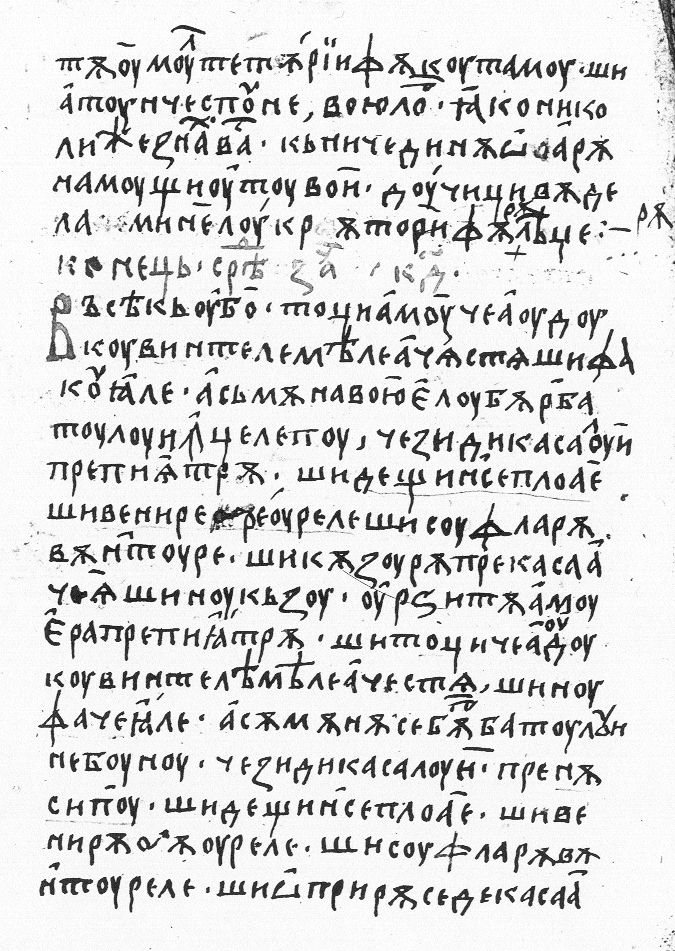 тѫꙋ мꙋлте тѫрїи фѫкоутамоу · ши
атоунчеспꙋне, воюлѡ · ꙗконико
ли
кьничединѫѡарѫ
намоущиоутоувои · доучицивѫде
ла · минелоукрѫторїи
конець · срѣ · за · кд ·
Въсѣкьоубо · тоциамоучеаоудоу
коувинтелемѣлеачѧстѧшифа
коуꙗле · асьмѫнавоюелоубѫрба
тоулоуицелепоу, чезидикасаоуи
препиатрѫ · шидещинсеплоае
шивенире реоурелешисоуфларѫ
вѫнтоуре · шикѫзоурѫпрекасаа
чеѧшиноукьзоу · оурѕитѫамоу
ерапрепиꙗтрѫ · шитоцичеаоудоу
коувинтелѣмѣлеачестѧ, шиноу
фачеꙗле · асѫмѫнѫсебѫрбатоулоуи
небоуноу · чезидикасалоуи · пренѫ
сипоу · шидещинсеплоае · шиве
нирѫ оуреле · шисоуфларѫвѫ
нтоуреле · шиѡприрѫседекасаа